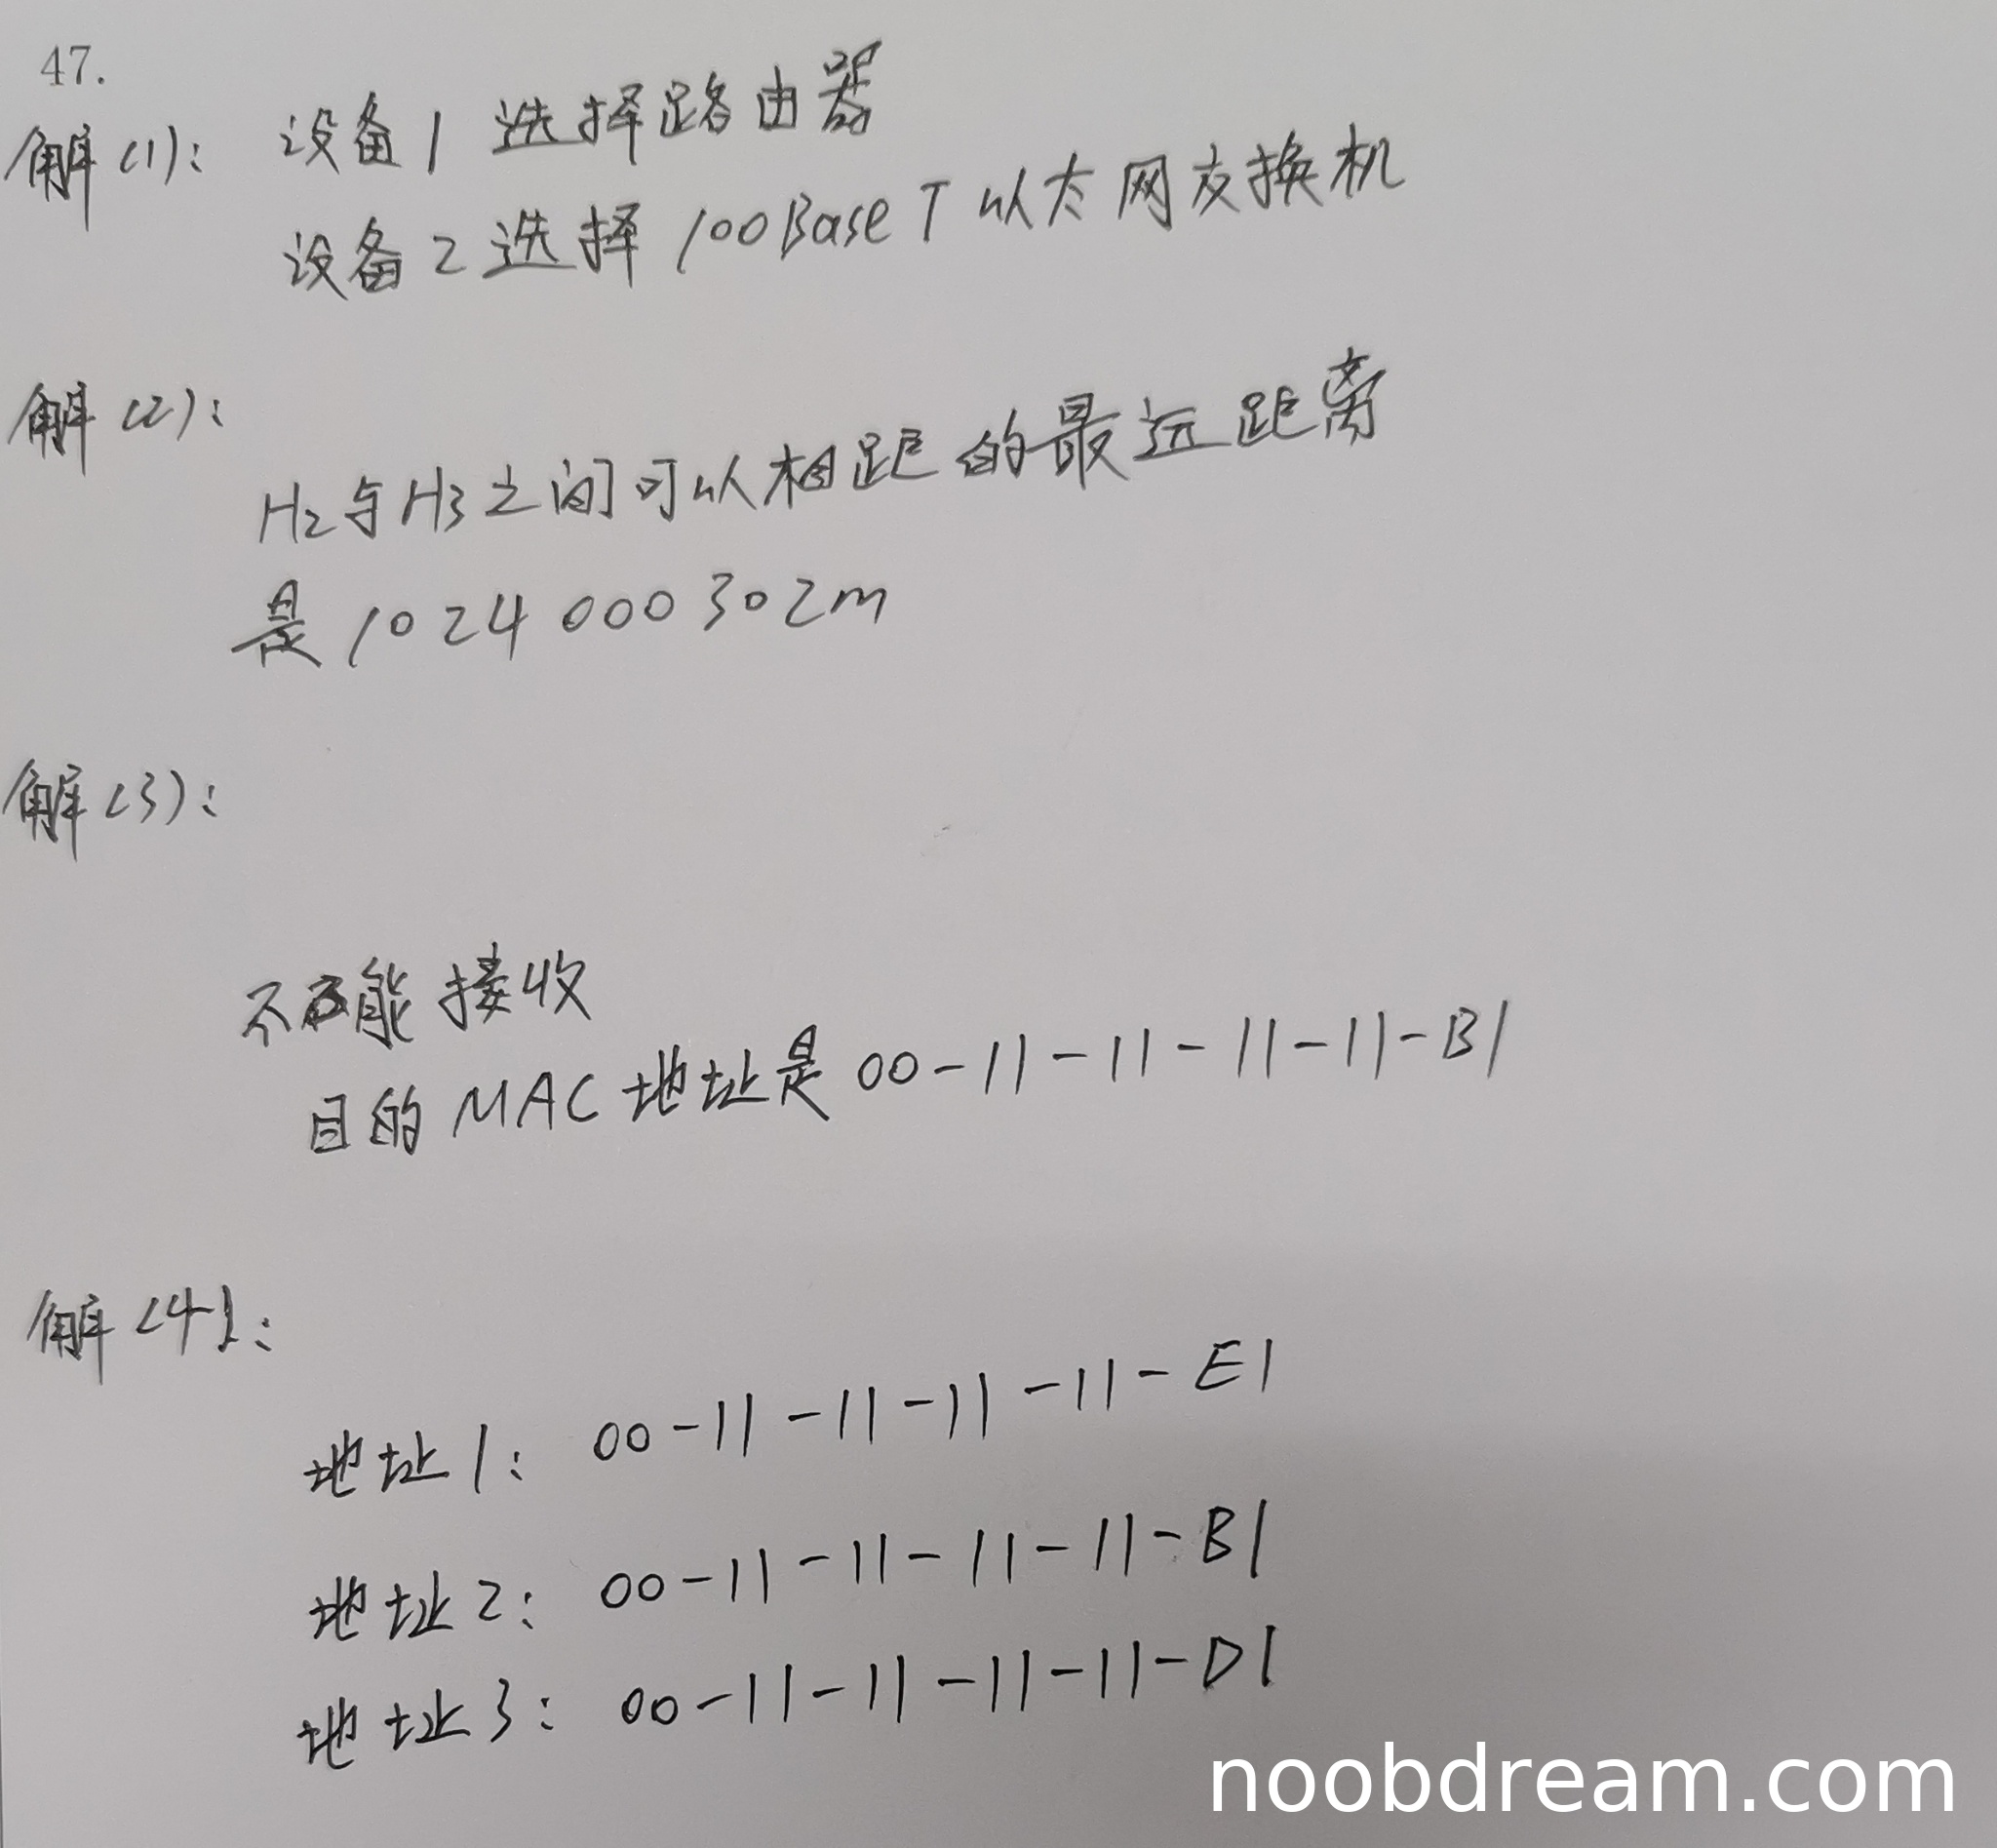 47.
解(1): 设备1 选择路由器
设备2选择 100BaseT 以太网交换机
解(2):
H2与H3之间可以相距的最远距离
是1024000302m
解(3):
不能接收
目的MAC地址是 00-11-11-11-11-B1
解(4):
地址1: 00-11-11-11-11-E1
地址2: 00-11-11-11-11-B1
地址3: 00-11-11-11-11-D1
noobdream.com